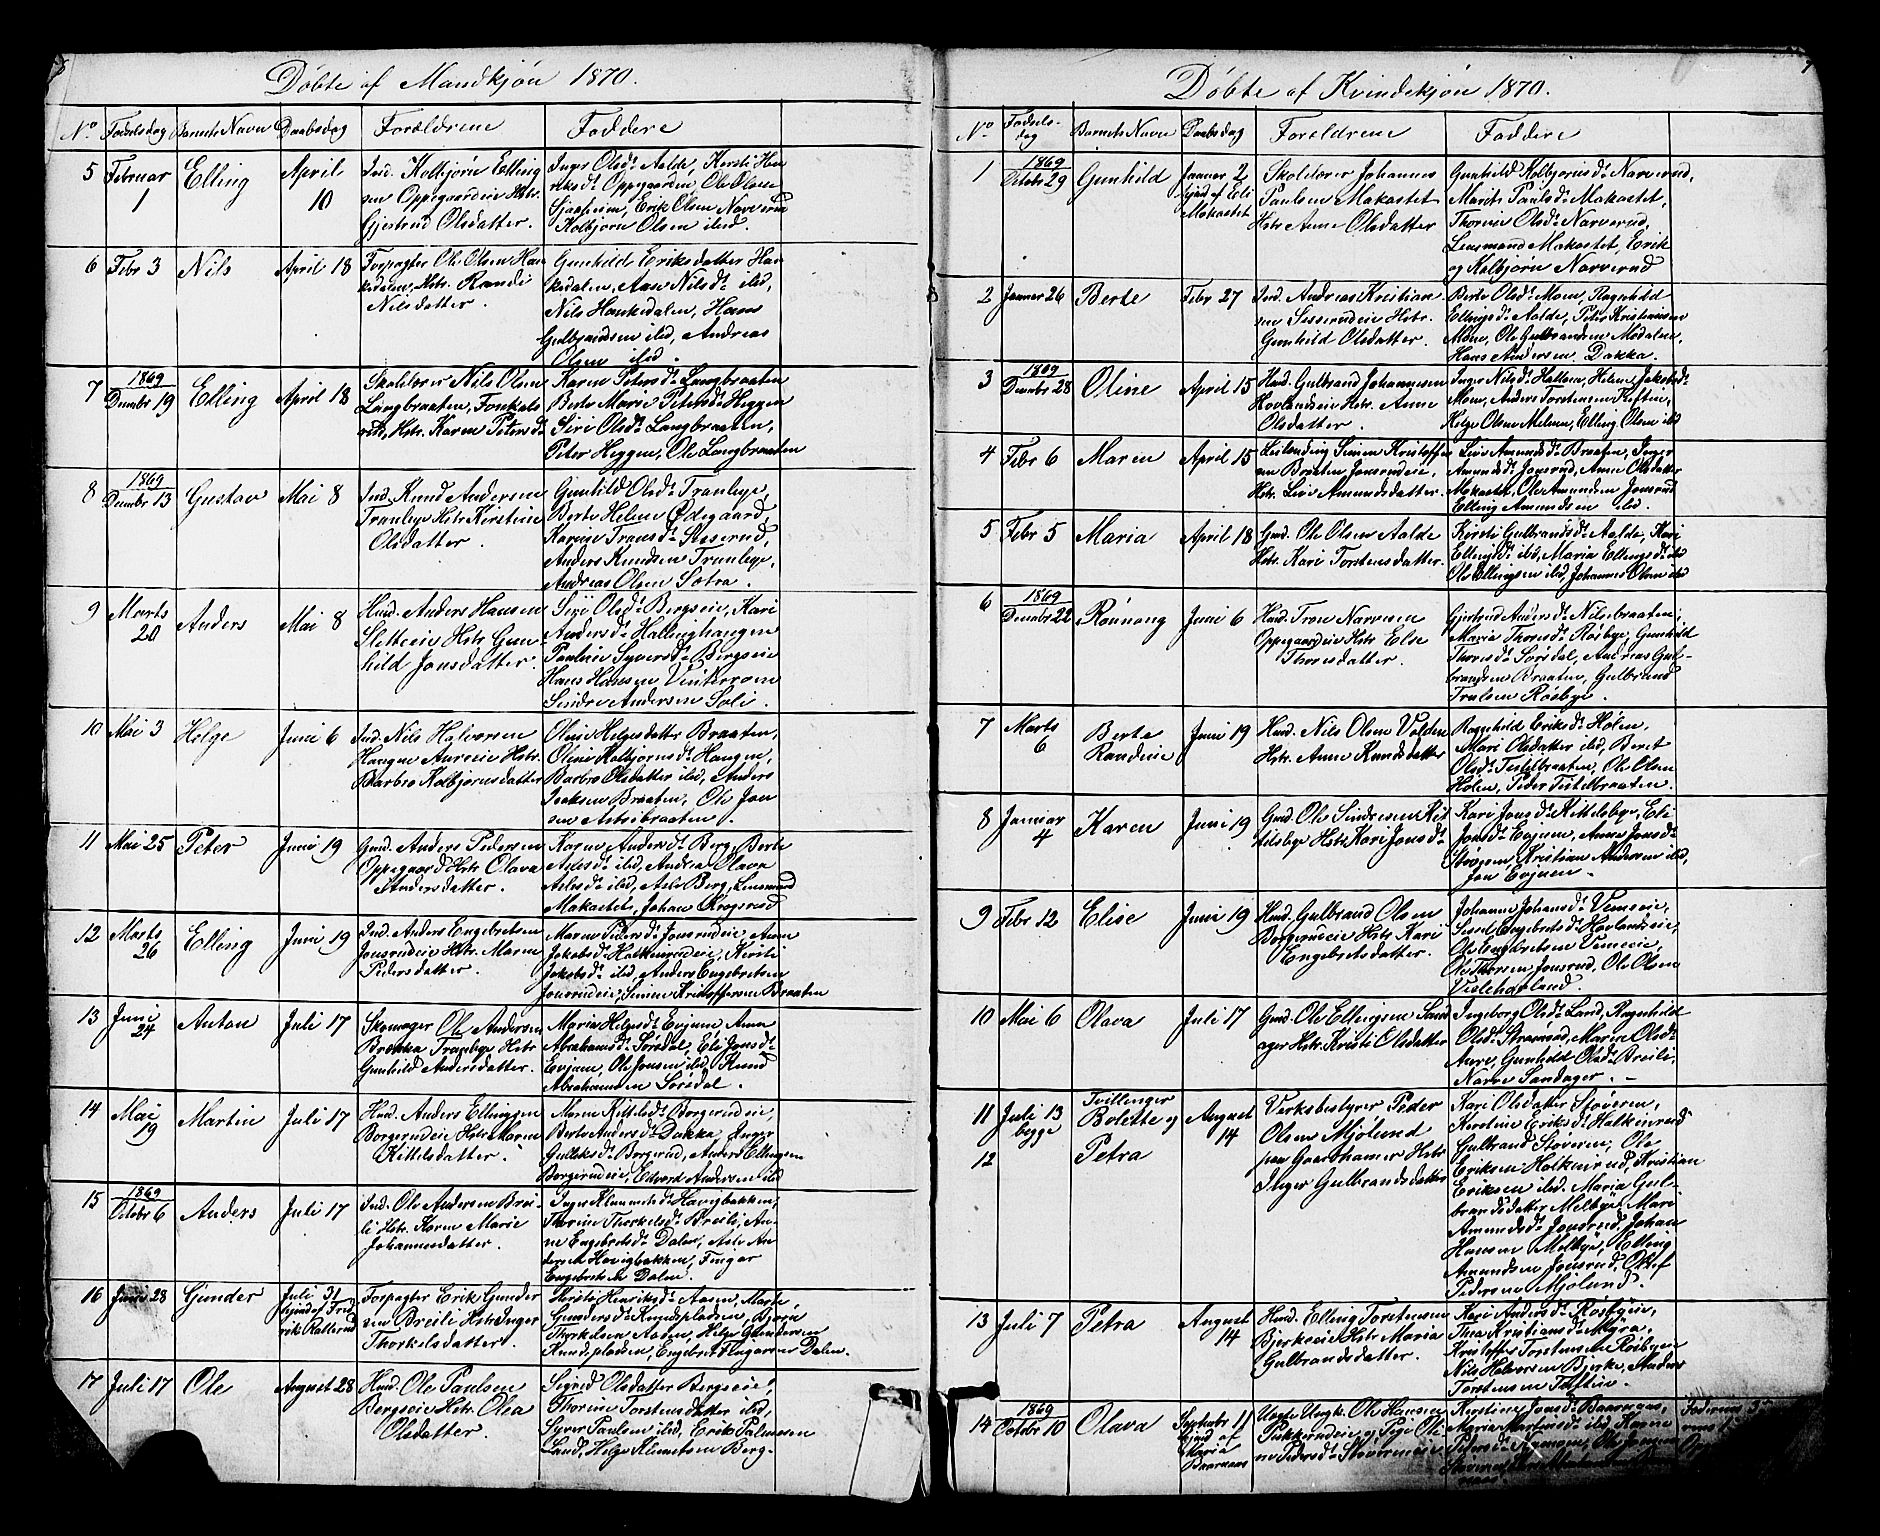 8
Döbte af Mandkjön 1870.
No Födselsdag Barnets Navn Daabsdag Forældrene Faddere
5 Februar 1 Elling April 10
Ind. Kolbjörn Elling
sen Oppegaardeie Hstr.
Gjertrud Olsdatter.
Inger Olsdr. Aalde, Kersti Hen
riksdr. Oppegaarden, Ole Olsen
Erik Olsen Narverud
Kolbjörn Olsen ibid.
6 Febr 3 Nils April 18
Forpagter Ole Olsen Han
kedalen, Hstr. Randi
Nilsdatter.
Gunhild Eriksdatter Han
kedalen, Anne Nilsdr. ibid,
Nils Hankedalen, Hans
Gulbrandsen ibid, Andreas
Olsen ibid.
7 1869 Decmbr 19 Elling April 18
Skolelærer Nils Olsen
Langbraaten,
Hstr. Karen Petersdr.
Karen Petersdr. Langbraaten
Berte Marie Petersdr. Heggen
Siri Olsdr. Langbraaten,
Peter Heggen, Ole Langbraaten
8 1869 Decmbr 13 Gustav Mai 8
Ind. Knud Andersen
Tranbye Hstr. Kirstine
Olsdatter.
Gunhild Olsdr. Tranbye,
Berte Helene Ødegaard
Karine Transdr. Sisserud,
Anders Knudsen Tranbye,
Andreas Olsen Sætra.
9 Marts 20 Anders Mai 8
Husd. Anders Hansen
Sletteeie Hstr. Gun
hild Jonsdatter.
Siri Olsdr. Bergseie, Kari
Andersdr. Hallinghaugen
Pauline Syversdr. Bergseie
Hans Hansen Vinterroen
Sindre Andersen Soli.
10 Mai 3 Helge Juni 6
Ind. Nils Halvorsen
Haugen Aureeie Hstr.
Barbro Kolbjörnsdatter
Oline Helgesdatter Braaten,
Oline Kolbjörnsdr. Haugen,
Barbro Olsdatter ibid, Anders
Isaksen Braaten, Ole Jon
sen Astribraaten.
11 Mai 25 Peter Juni 19
Gmd. Anders Pedersen
Oppegaard Hstr. Olava
Andersdatter.
Karen Andersdr. Berg, Berte
Aslesdr. ibid, Andrea Olava
Aslesdr. ibid, Asle Berg, Lensmand
Makastet, Johan Krogsrud
12 Marts 26 Elling Juni 19
Ind. Anders Engebretsen
Jonsrudeie Hstr. Maren
Pedersdatter.
Maren Pedersdr. Jonsrudeie, Anne
Jakobsdr. Halkinrudeie, Kirsti
Jakobsdr. ibid, Anders Engebretsen
Jonsrudeie, Simen Kristoffersen Braaten
13 Juni 24 Anton Juli 17
Skomager Ole Andersen
Brækka Tranbye Hstr
Gunhild Andersdatter.
Maria Helgesdr. Evjuen, Anna
Abrahamsdr. Sörsdal, Eli Jonsdr.
Evjuen, Ole Jonsen ibid, Knud
Abrahamsen Sörsdal.
14 Mai 19 Martin Juli 17
Husd. Anders Ellingsen
Borgerudeie Hstr. Maren
Kittelsdatter.
Maren Kittelsdr. Borgerudeie,
Berte Andersdr. Dakka, Inger
Gulleksdr. Borgerud, Anders Ellingsen
Borgerudeie, Edvard Andersen ibid
15 1869 Octobr 6 Anders Juli 17
Ind. Ole Andersen Brei-
li Hstr. Karen Marie
Johannesdatter.
Inger Klemmetsdr. Havigbakken,
Thorine Thorkelsdr. Breili, An-
ne Engebretsdr. Dalen, Asle An
dersen Havigbakken, Fingar
Engebretsen Dalen.
16 Juni 28 Gunder Juli 31
Hjemd. af Fred
rik Ratterud
Forpagter Erik Gunder
sen Breili Hstr. Inger
Thorkelsdatter.
Kersti Henriksdr. Aasen, Marte
Gundersdr. Knudspladsen, Björn
Thorkelsen Aasen, Helge Gundersen
Knudspladsen, Engebret Fingarsen Dalen.
17 Juli 17 Ole August 28
Husd. Ole Paulsen
Bergseie Hstr. Olea
Olsdatter.
Sigrid Olsdatter Bergseie,
Thorine Torstensdatter ibid,
Syver Paulsen ibid, Erik Palmesen
Land, Helge Klemetsen Berg-
9
Döbte af Kvindekjön 1870.
No Födsels-
dag Barnets Navn Daabsdag Forældrene Faddere
1 1869 Octobr 29 Gunhild Januar 2
Hjemd af Eli
Makastet
Skolelærer Johannes
Paulsen Makastet
Hstr Anne Olsdatter
Gunhild Kolbjörnsdr. Narverud,
Marit Paulsdr. Makastet,
Thorine Olsdr. Narverud,
Lensmand Makastet, Erik
og Kolbjörn Narverud
2 Januar 26 Berte Febr 27
Ind. Andreas Kristian
sen Sisserudeie Hstr.
Gunhild Olsdatter.
Berte Olsdr. Moen, Ragnhild
Ellingsdr. Aalde, Peter Kristiansen
Moen, Ole Gulbrandsen Modalen,
Hans Andersen Dakka.
3 1869 Decmbr 28 Oline April 15
Husd. Gulbrand Johannesen
Hovlandseie Hstr. Anne
Olsdatter.
Inger Nilsdr. Hallum, Helene Jakobsdr.
Moen, Anders Torstensen Teften,
Helge Olsen Melum, Elling Olsen ibid
4 Febr 6 Maren April 15
Leilending Simen Kristoffer
sen Braaten Jonsrudeie,
Hstr. Livi Amundsdatter.
Livi Amundsdr. Braaten, Inger
Amundsdr. Jonsrud, Anne Olsdatter
Makastet, Ole Amundsen Jonsrud
Elling Amundsen ibid.
5 Febr 5 Maria April 18
Gmd. Ole Olsen Aalde
Hstr. Kari Torstensdatter.
Kersti Gulbrandsdr. Aalde, Kari
Ellingsdr. ibid, Maria Ellingsdr. ibid
Ole Ellingsen ibid, Johannes Olsen ibid
6 1869 Decmbr 22 Rönnoug Juni 6
Husd. Tron Narvesen
Oppegaardeie Hstr. Else
Thoresdatter.
Gjertrud Andersdr. Nilsebraaten,
Maria Thoresdr. Rösbye, Gunhild
Thoresdr. Sörsdal, Andreas Gul-
brandsen Braaten, Gulbrand
Trulsen Rösbye.
7 Marts 6 Berte
Randine Juni 19
Husd. Nils Olsen Volden
Hstr. Anne Knudsdatter
Ragnhild Eriksdr. Holen,
Mari Olsdatter ibid, Beret
Olsdr. Testelbraaten, Ole Olsen
Holen, Peder Tistelbraaten.
8 Januar 4 Karen Juni 19
Gmd. Ole Sindresen Kit
telsbye Hstr Kari Jonsdr.
Kari Jonsdr. Kittelsbye, Eli
Jonsdr. Evjuen, Anne Jonsdr.
Kristian Andersen ibid,
Jon Evjuen.
9 Febr 12 Elise Juni 19
Husd. Gulbrand Olsen
Borgerudeie Hstr Kari
Engebretsdatter.
Johanne Johansdr. Vemeeie,
Engebretsdr. Hovlandseie,
Ole Engbretsen Vemeeie,
Ole Thorsen Jonsrud, Ole Olsen
Vestlehovland.
10 Mai 6 Olava Juli 17
Gmd. Ole Ellingsen Sand
ager Hstr. Kristi Olsdatter
Ingeborg Olsdr. Land, Ragnhild
Olsdr. Strömsod, Maren Olsdr.
Aure, Gunhild Olsdr. Breili,
Narve Sandager. –
11
12 Juli 13
begge Tvillinger
Bolette og
Petra August
14
Verksbestyrer Peder
Olsen Mjölund
paa Gaarhamer Hstr
Inger Gulbrandsdatter
Kari Olsdatter Stöveren,
Kerstine Eriksdr. Halkinrud
Gulbrand Stöveren, Ole
Eriksen Halkinrud, Kristian
Eriksen ibid. Maria Gul-
brandsdatter Melbye, Mari
Amundsdr. Jonsrud, Johan
Hansen Melbye, Elling
Amundsen Jonsrud, Oluf
Pedersen Mjölund.
13 Juli 7 Petra August
14
Husd. Elling Torstensen
Bjerkeeie Hstr Maria
Gulbrandsdatter.
Kari Andersdr. Rösbyeie,
Thea Kristiansdr. Myra,
Kristoffer Torstensen Rösbyeie
Nils Halvorsen Bjerke, Anders
Torstensen Teften.
14 1869 Octobr 10 Olava Septmbr 11
Hjemd af
Maria
Baarnaas
Uægte Ungk. Ole Hansen
Pukkerudeie og Pige Oli
ne Pedersdr. Stöverneeie
Kerstine Jonsdr. Baarnaas,
Maria Martinsdr. ibid, Karen
Pedersdr.